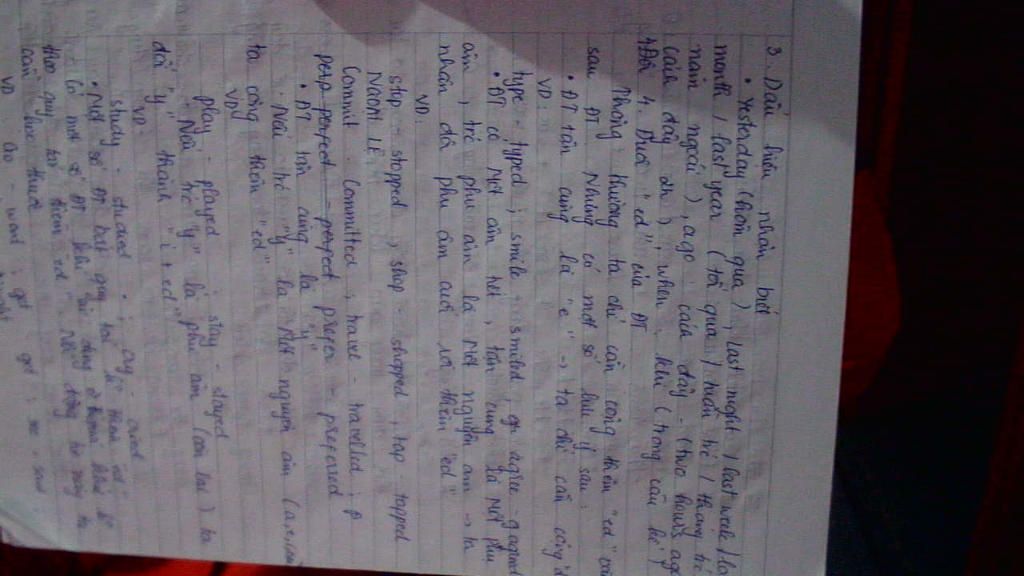 3. Dấu hiệu nhận biết
• Yesterday (hôm qua), last night / last week / la
month / last year (tối qua / tuần trc / tháng trc
năm ngoái), ago cách đây - (two hours ago
cách đây 2h), when: khi (trong câu kể)
4. Đuôi "ed" của ĐT
Thông thường ta chỉ cần cộng thêm "ed"
sau ĐT. Nhưng có một số lưu ý sau:
• ĐT tận cùng là "e" → ta chỉ cần cộng "d
VD:
type - typed; smile - smiled; agree - agreed
• ĐT có một âm tiết, tận cùng là một phụ
âm, trc phụ âm là một nguyên âm → ta
nhân đôi phụ âm cuối và thêm "ed"
VD.
stop - stopped, shop - shopped, tap - tapped
Ngoại lệ
Commit - committed; travel - travelled;
prefer - preferred
• ĐT tận cùng là "y"
- Nếu trc "y" là một nguyên âm (a,e,i,o,u
ta cộng thêm "ed"
VD
play - played; stay - stayed
- Nếu trc "y" là phụ âm (còn lại) ta
đổi "y" thành "i + ed"
VD:
study - studied; cry - cried
• Một số ĐT bất quy tắc
- Có một số ĐT khi
theo quy tắc thêm ed.
cần học thuộc
VD Go - went; get - got; see - saw